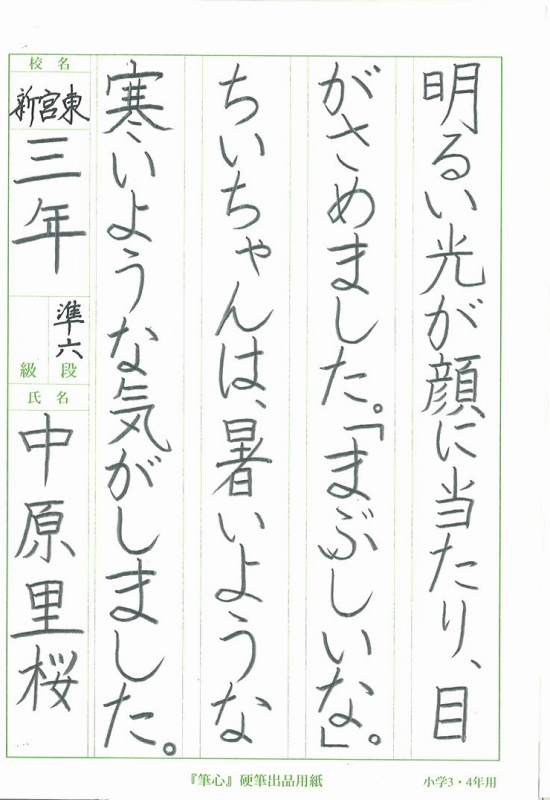 明るい光が顔に当たり、目
がさめました。「まぶしいな。」
ちいちゃんは、暑いような
寒いような気がしました。
校名
新宮東
三年
準六
段
級
氏名
中原里桜
『筆心』硬筆出品用紙
小学3・4年用